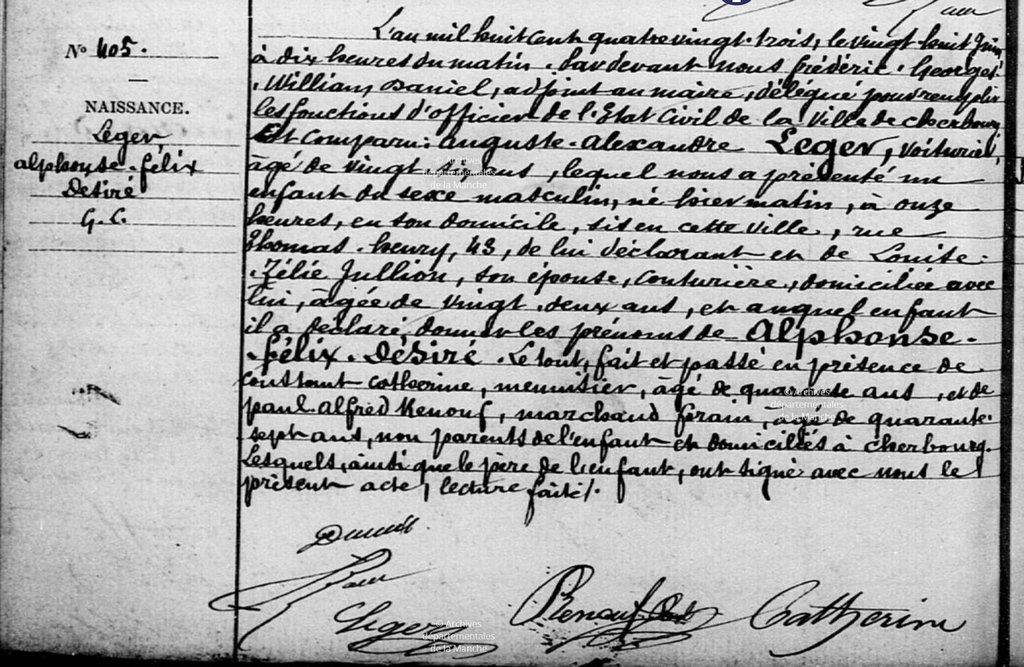 N° 405.
NAISSANCE.
Leger
alphonse-félix
Désiré
G. C.
L'an mil huit cent quatre vingt-trois, le vingt huit Juin
à dix heures du matin. Pardevant nous frédéric-Georges-
William Daniel, adjoint au maire, délégué pour remplir
les fonctions d'officier de l'Etat Civil de la Ville de cherbourg
Est comparu: auguste-alexandre LEGER, voiturier,
âgé de vingt ans, lequel nous a présenté un
enfant du sexe masculin, né hier matin, à onze
heures, en son domicile, sis en cette ville, rue
Thomas-henry, 43, de lui déclarant et de Louise-
Zélie Jullion, son épouse, couturière, domiciliée avec
lui, âgée de vingt-deux ans, et auquel enfant
il a déclaré donner les prénoms de Alphonse-
félix-Désiré. Le tout, fait et passé en présence de
constant catherine, menuisier, âgé de quarante ans, et de
paul-alfred Renouf, marchand forain, âgé de quarante-
sept ans, non parents de l'enfant et domiciliés à cherbourg.
Lesquels, ainsi que le père de l'enfant, ont signé avec nous le
présent acte, lecture faite/.
Leger
Renouf
Catherine
© Archives
départementales
de la Manche
© Archives
départementales
de la Manche
© Archives
départementales
de la Manche